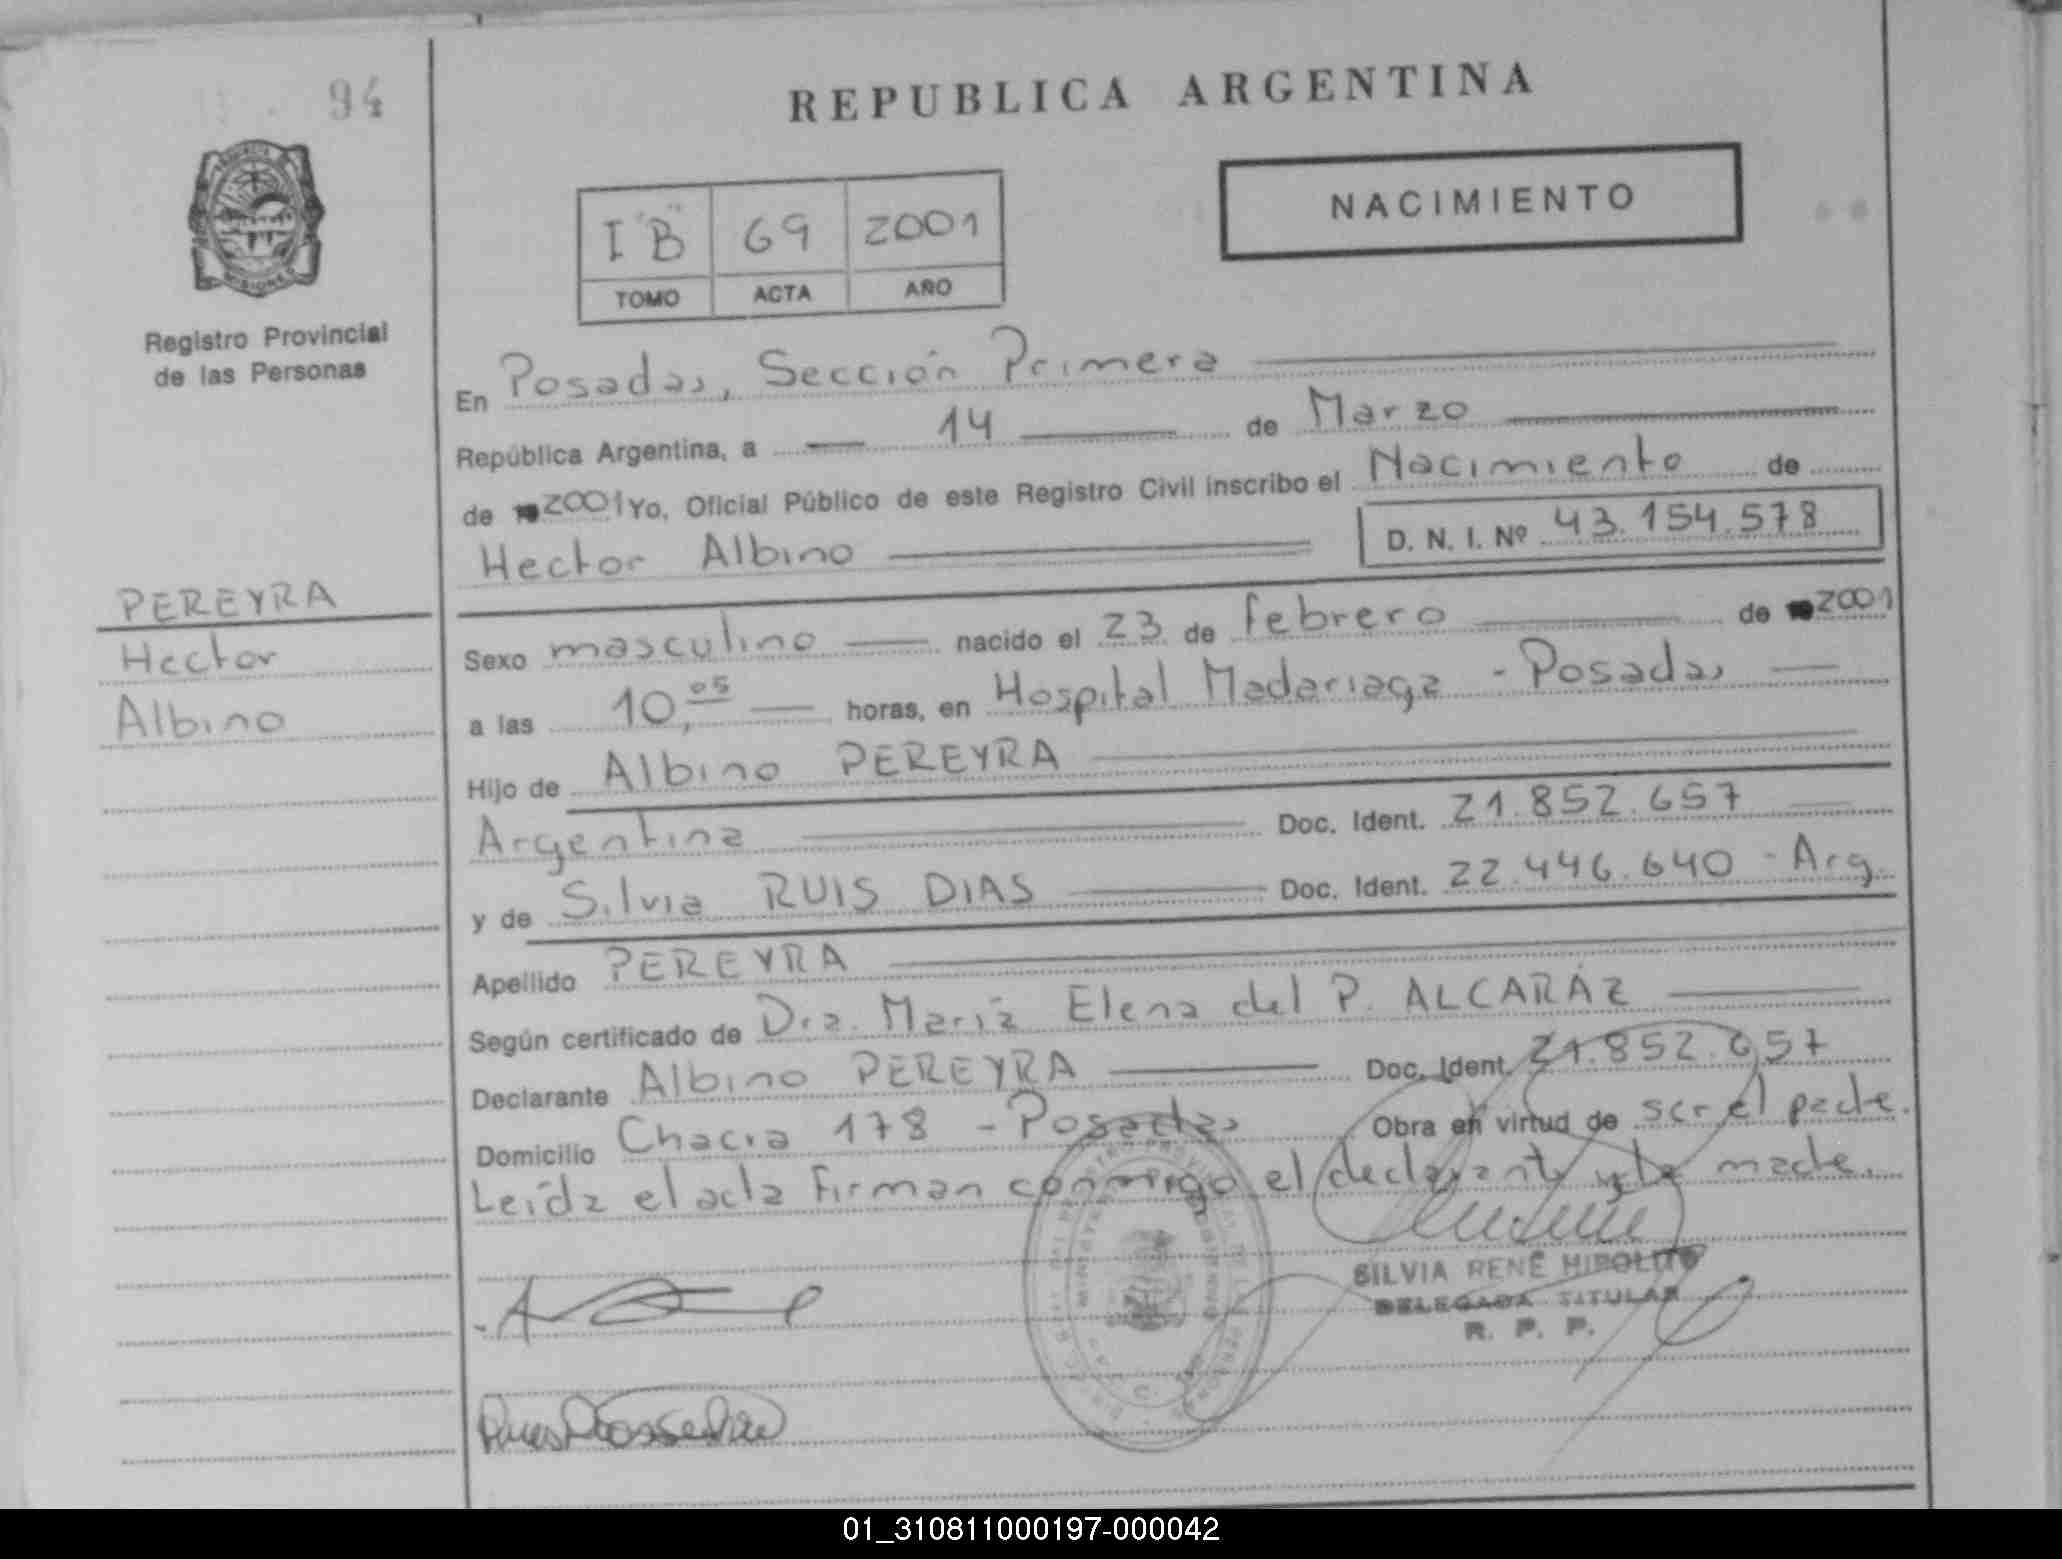 94
REPUBLICA ARGENTINA
NACIMIENTO
I "B" 69 2001
TOMO ACTA AÑO
Registro Provincial
de las Personas
En Posadas, Sección Primera
República Argentina, a 14 de Marzo
de 2001 Yo, Oficial Público de este Registro Civil inscribo el Nacimiento de
Hector Albino D. N. I. Nº 43.154.578
PEREYRA
Hector
Albino
Sexo masculino nacido el 23 de febrero de 2001
a las 10,05 horas, en Hospital Madariaga - Posadas
Hijo de Albino PEREYRA
Argentina Doc. Ident. 21.852.657
y de Silvia RUIS DIAS Doc. Ident. 22.446.640 - Arg.
Apellido PEREYRA
Según certificado de Dra. María Elena del P. ALCARÁZ
Declarante Albino PEREYRA Doc. Ident. 21.852.657
Domicilio Chacra 178 - Posadas Obra en virtud de ser el padre.
Leída el acta firman conmigo el declarante y la madre.
SILVIA RENÉ HIPOLITO
DELEGADA TITULAR
R. P. P.
01_310811000197-000042